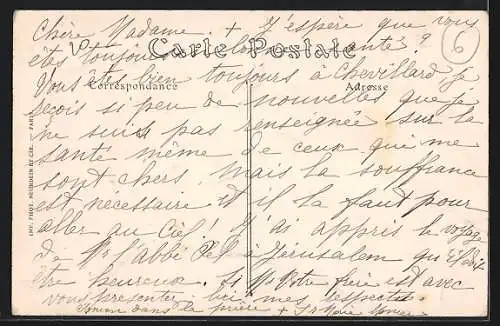 Chère Madame + J'espère que vous
êtes toujours en bonne santé ?
Carte Postale
6
Vous êtes bien toujours à Chevillard je
Correspondance
Adresse
reçois si peu de nouvelles que je
ne suis pas renseignée sur la
santé même de ceux qui me
sont chers, mais la souffrance
est nécessaire et il la faut pour
aller au Ciel ! J'ai appris le voyage
de Mr l'abbé à Jérusalem qu'il doit
être heureux. Si Mr votre frère est avec
vous présentez lui mes respects.
Union dans la prière + Sr Marie
IMP. PHOT. NEURDEIN ET CIE. — PARIS